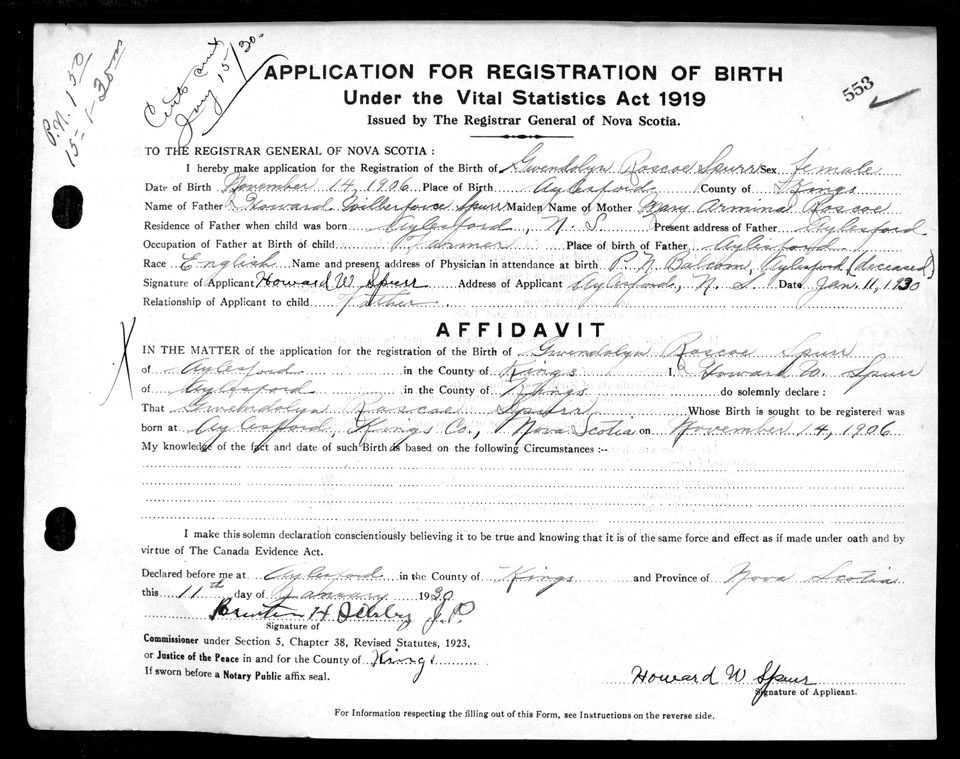 P.N. 1.50
15 - 1 - 30
Certs sent
Jany 15/30
APPLICATION FOR REGISTRATION OF BIRTH
553
Under the Vital Statistics Act 1919
Issued by The Registrar General of Nova Scotia.
TO THE REGISTRAR GENERAL OF NOVA SCOTIA:
I hereby make application for the Registration of the Birth of Gwendolyn Roscoe Spurr Sex female
Date of Birth November 14, 1906 Place of Birth Aylesford County of Kings
Name of Father Howard Wilberforce Spurr Maiden Name of Mother Mary Armina Roscoe
Residence of Father when child was born Aylesford, N. S. Present address of Father Aylesford
Occupation of Father at Birth of child Farmer Place of birth of Father Aylesford
Race English Name and present address of Physician in attendance at birth P. N. Balcom, Aylesford (deceased)
Signature of Applicant Howard W. Spurr Address of Applicant Aylesford, N. S. Date Jan. 11, 1930
Relationship of Applicant to child Father
AFFIDAVIT
IN THE MATTER of the application for the registration of the Birth of Gwendolyn Roscoe Spurr
of Aylesford in the County of Kings I, Howard W. Spurr
of Aylesford in the County of Kings do solemnly declare:
That Gwendolyn Roscoe Spurr Whose Birth is sought to be registered was
born at Aylesford, Kings Co., Nova Scotia on November 14, 1906
My knowledge of the fact and date of such Birth is based on the following Circumstances:--
I make this solemn declaration conscientiously believing it to be true and knowing that it is of the same force and effect as if made under oath and by
virtue of The Canada Evidence Act.
Declared before me at Aylesford in the County of Kings and Province of Nova Scotia
this 11th day of January 1930
H J.P.
Signature of
Commissioner under Section 5, Chapter 38, Revised Statutes, 1923,
or Justice of the Peace in and for the County of Kings
If sworn before a Notary Public affix seal.
Howard W Spurr
Signature of Applicant.
For Information respecting the filling out of this Form, see Instructions on the reverse side.